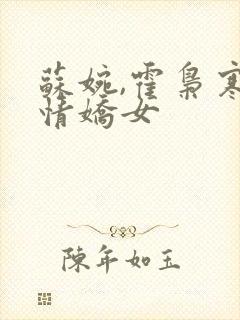 蘇婉,霍梟寒
情嬌女
陳年如玉